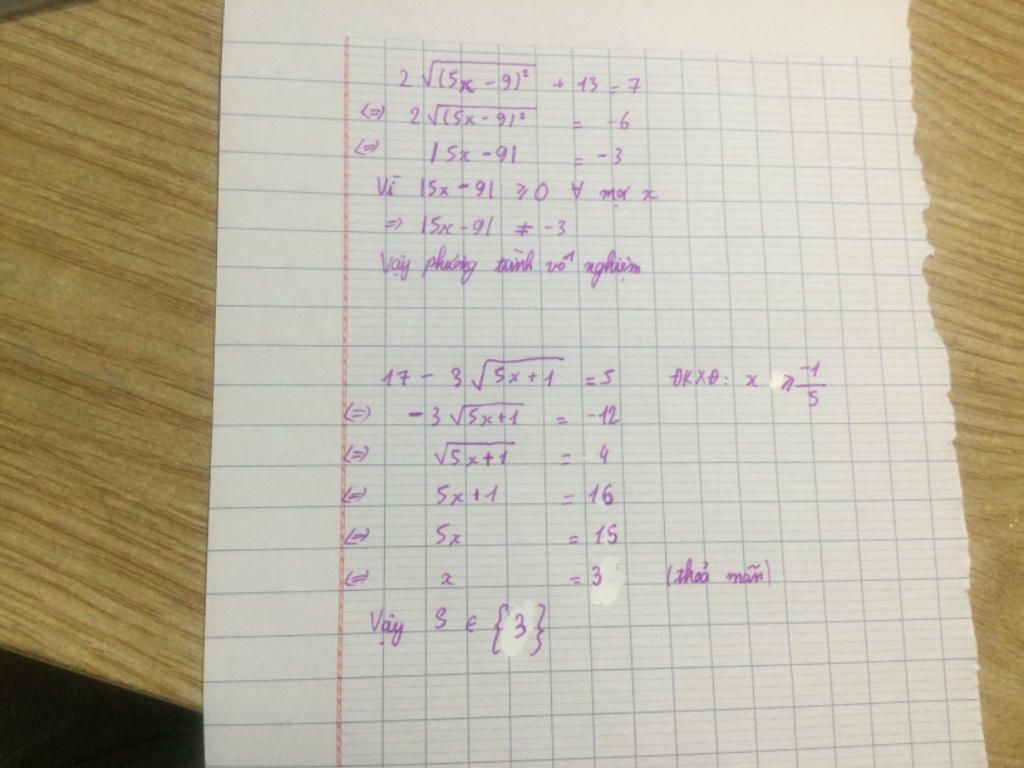 2√(5x-9)² + 13 = 7
<=> 2√(5x-9)² = -6
<=> |5x-9| = -3
Vì |5x-9| ≥ 0 ∀ mọi x
=> |5x-9| ≠ -3
Vậy phương trình vô nghiệm
17 - 3√5x+1 = 5 ĐKXĐ: x ≥ -1/5
<=> -3√5x+1 = -12
<=> √5x+1 = 4
<=> 5x+1 = 16
<=> 5x = 15
<=> x = 3 (thoả mãn)
Vậy S ∈ {3}